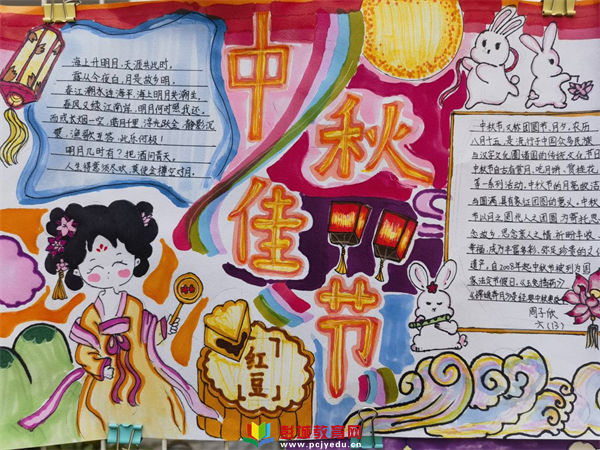 海上升明月,天涯共此时。
露从今夜白,月是故乡明。
春江潮水连海平,海上明月共潮生。
春风又绿江南岸,明月何时照我还。
而或长烟一空,皓月千里,浮光跃金,静影沉
璧,渔歌互答,此乐何极!
明月几时有?把酒问青天。
人生得意须尽欢,莫使金樽空对月。
中秋佳节
中秋节,又称团圆节,月夕,农历
八月十五,是流行于中国众多民族
与汉字文化圈诸国的传统文化节日
中秋节自古有赏月、吃月饼、赏桂花、
等一系列活动,
念故乡,思念亲人之情,祈盼丰收、
幸福,成为丰富多彩、弥足珍贵的文化
遗产,自2008年起中秋节被列为国
家法定节假日。
周子欣
六(13)
红豆
彭城教育网
www.pcjyedu.cn